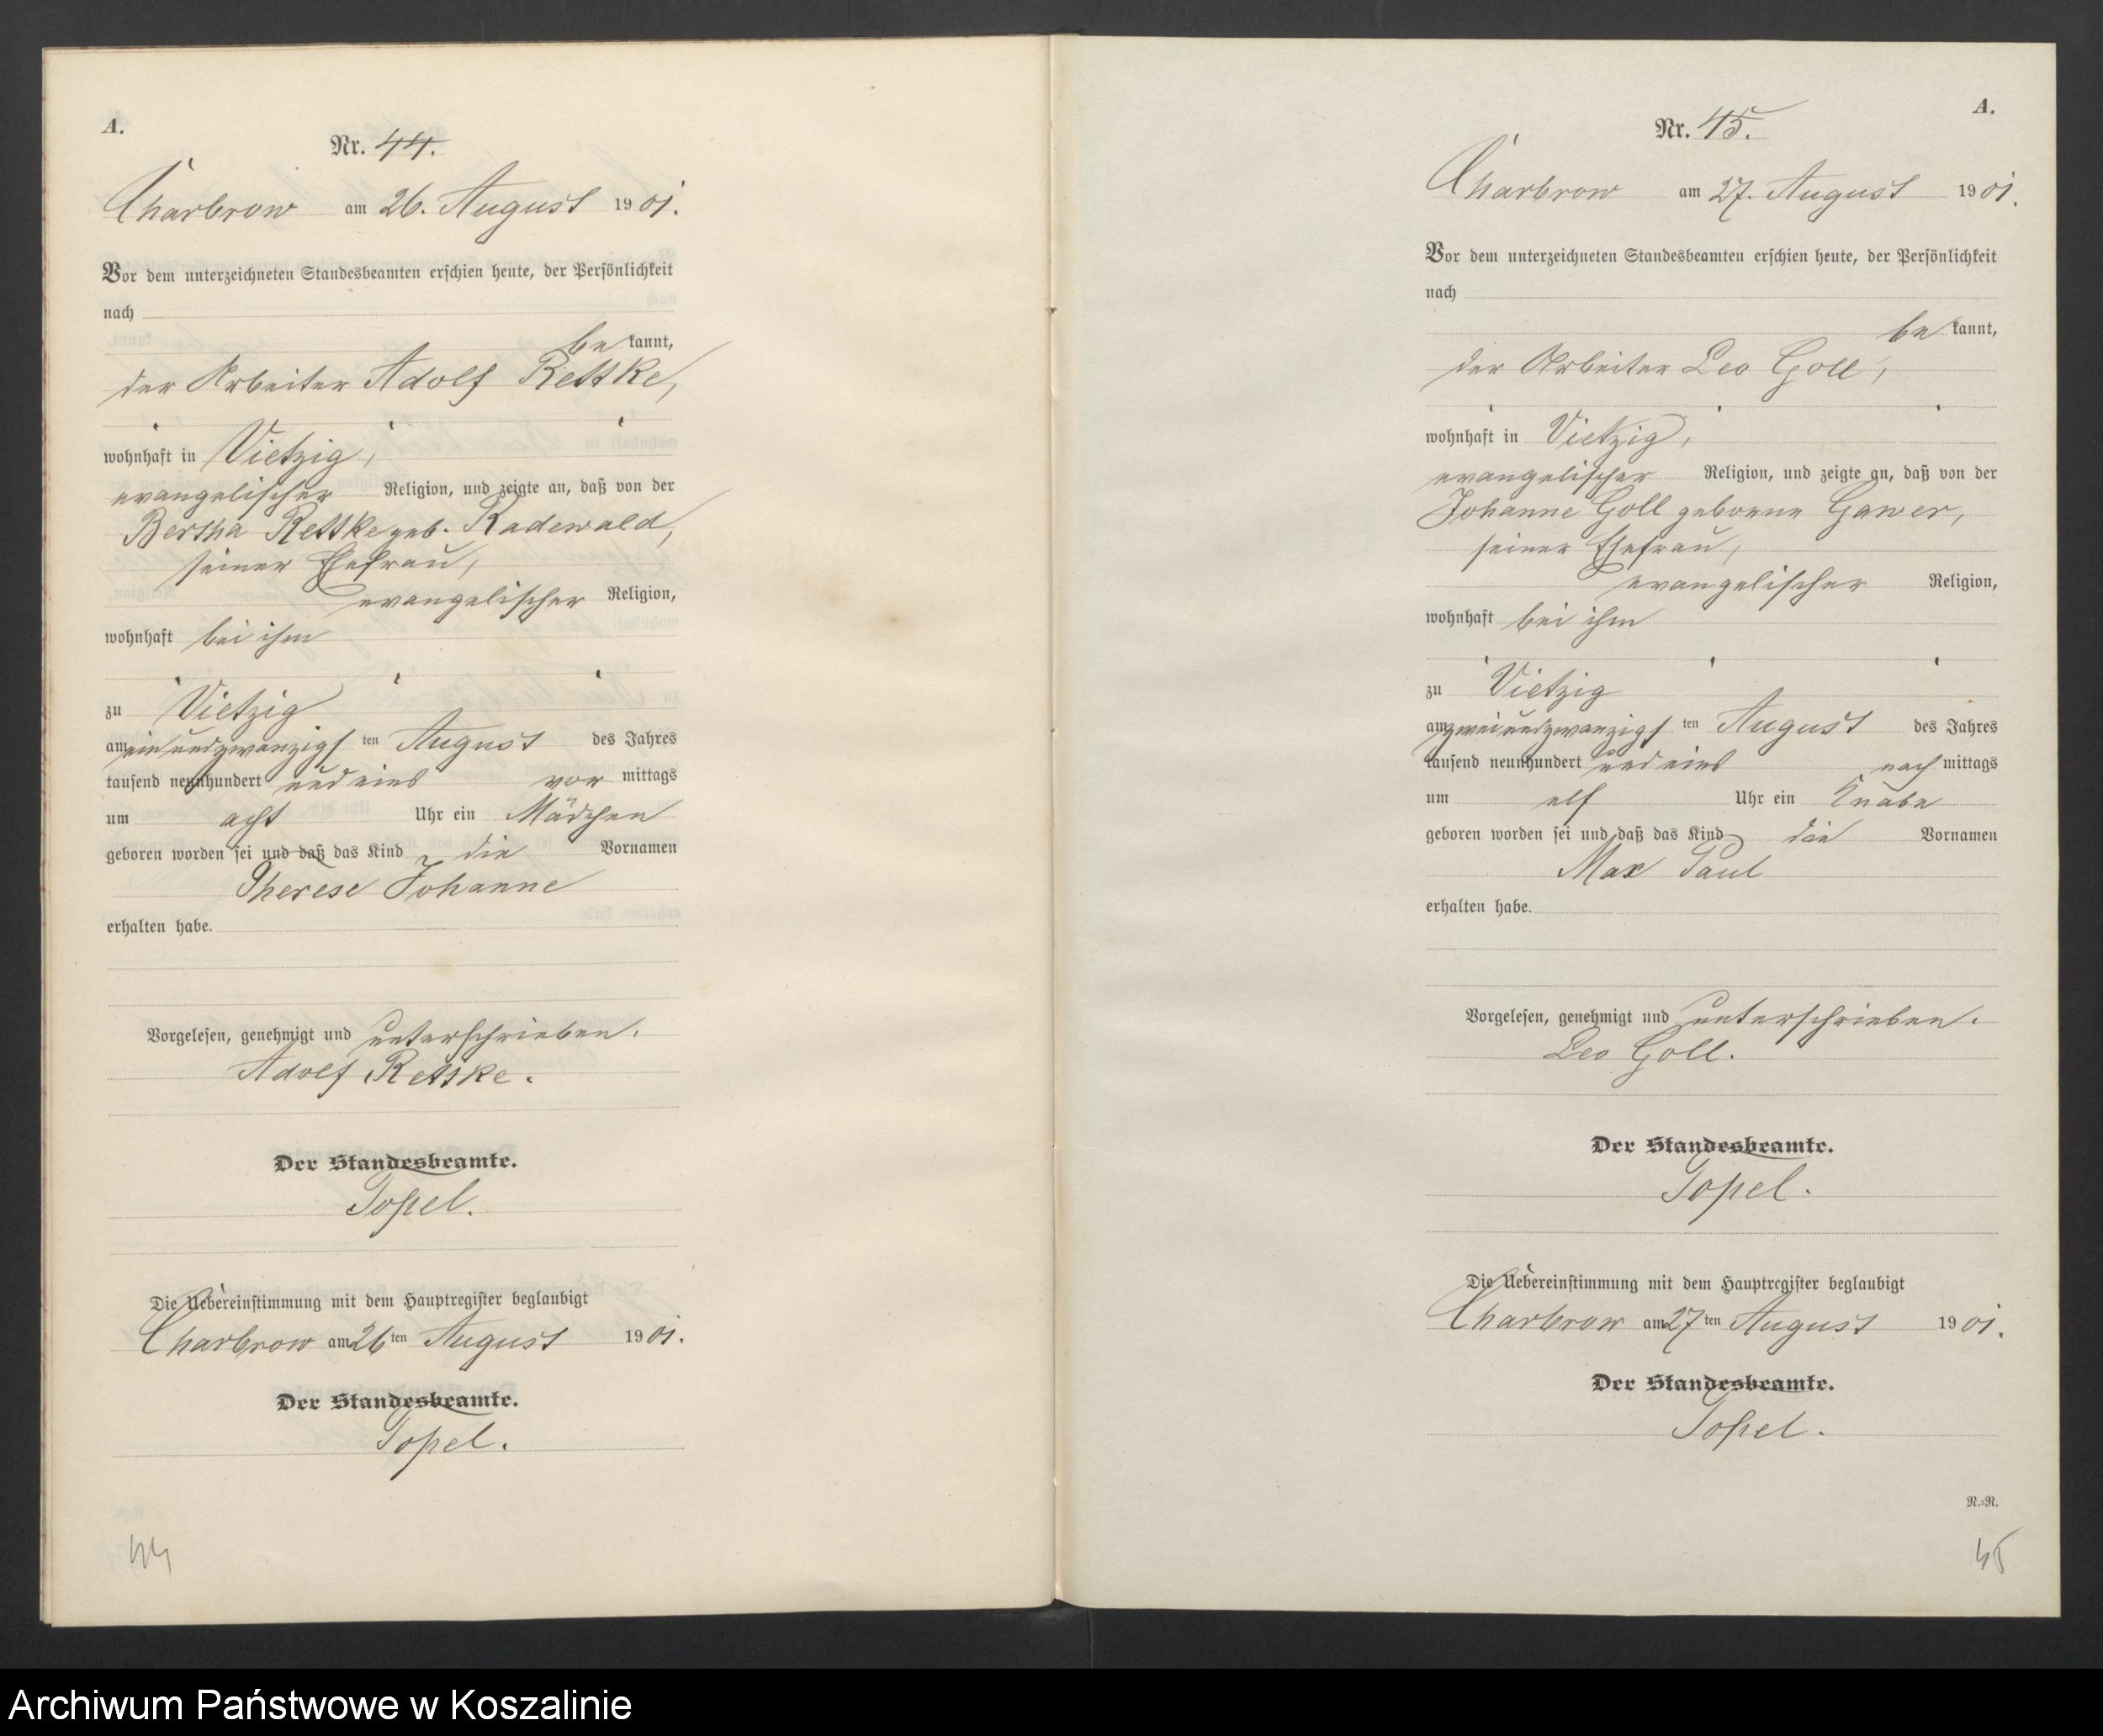 A.
Nr. 44.
Charbrow am 26. August 1901.
Vor dem unterzeichneten Standesbeamten erschien heute, der Persönlichkeit
nach
be kannt,
der Arbeiter Adolf Rettke,
wohnhaft in Vietzig,
evangelischer Religion, und zeigte an, daß von der
Bertha Rettke geb. Radewald,
seiner Ehefrau,
evangelischer Religion,
wohnhaft bei ihm
zu Vietzig
am einundzwanzigs ten August des Jahres
tausend neunhundert und eins vor mittags
um acht Uhr ein Mädchen
geboren worden sei und daß das Kind die Vornamen
Therese Johanne
erhalten habe.
Vorgelesen, genehmigt und unterschrieben.
Adolf Rettke.
Der Standesbeamte.
Topel.
Die Uebereinstimmung mit dem Hauptregister beglaubigt
Charbrow am 26ten August 1901.
Der Standesbeamte.
Topel.
44
A.
Nr. 45.
Charbrow am 27. August 1901.
Vor dem unterzeichneten Standesbeamten erschien heute, der Persönlichkeit
nach
be kannt,
der Arbeiter Leo Goll,
wohnhaft in Vietzig,
evangelischer Religion, und zeigte an, daß von der
Johanne Goll geborne Gawer,
seiner Ehefrau,
evangelischer Religion,
wohnhaft bei ihm
zu Vietzig
am zweiundzwanzigs ten August des Jahres
tausend neunhundert und eins nach mittags
um elf Uhr ein Knabe
geboren worden sei und daß das Kind die Vornamen
Max Paul
erhalten habe.
Vorgelesen, genehmigt und unterschrieben.
Leo Goll.
Der Standesbeamte.
Topel.
Die Uebereinstimmung mit dem Hauptregister beglaubigt
Charbrow am 27ten August 1901.
Der Standesbeamte.
Topel.
N.=R.
45
Archiwum Państwowe w Koszalinie